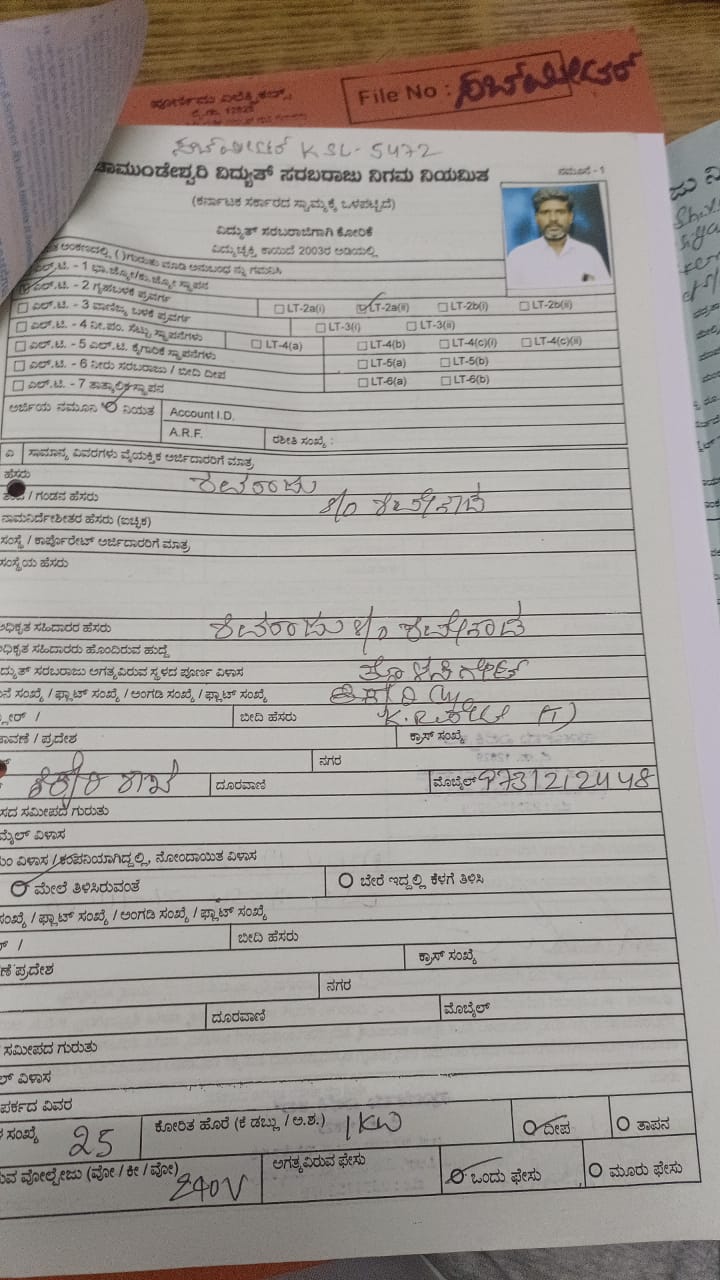 ಪೂರ್ಣಿಮಾ ಎಲೆಕ್ಟ್ರಿಕಲ್ಸ್,
File No : ಸಬ್‌ಮೀಟರ್
ಸಬ್‌ಮೀಟರ್ KSL-5472
ಚಾಮುಂಡೇಶ್ವರಿ ವಿದ್ಯುತ್ ಸರಬರಾಜು ನಿಗಮ ನಿಯಮಿತ
ನಮೂನೆ - 1
(ಕರ್ನಾಟಕ ಸರ್ಕಾರದ ಸ್ವಾಮ್ಯಕ್ಕೆ ಒಳಪಟ್ಟಿದೆ)
ವಿದ್ಯುತ್ ಸರಬರಾಜಿಗಾಗಿ ಕೋರಿಕೆ
ವಿದ್ಯುಚ್ಛಕ್ತಿ ಕಾಯಿದೆ 2003ರ ಅಡಿಯಲ್ಲಿ
ಅಂಕಣದಲ್ಲಿ ( )ಗುರುತು ಮಾಡಿ ಅನುಬಂಧ ನ್ನು ಗಮನಿಸಿ
ಎಲ್.ಟಿ. - 1 ಭಾ.ಜ್ಯೋ/ಕು.ಜ್ಯೋ ಸ್ಥಾಪನ
ಎಲ್.ಟಿ. - 2 ಗೃಹಬಳಕೆ ಪ್ರವರ್ಗ LT-2a(i) LT-2a(ii) LT-2b(i) LT-2b(ii)
ಎಲ್.ಟಿ. - 3 ವಾಣಿಜ್ಯ ಬಳಕೆ ಪ್ರವರ್ಗ LT-3(i) LT-3(ii)
ಎಲ್.ಟಿ. - 4 ನೀ.ಪಂ. ಸೆಟ್ಟು ಸ್ಥಾಪನೆಗಳು LT-4(a) LT-4(b) LT-4(c)(i) LT-4(c)(ii)
ಎಲ್.ಟಿ. - 5 ಎಲ್.ಟಿ. ಕೈಗಾರಿಕೆ ಸ್ಥಾಪನೆಗಳು LT-5(a) LT-5(b)
ಎಲ್.ಟಿ. - 6 ನೀರು ಸರಬರಾಜು / ಬೀದಿ ದೀಪ LT-6(a) LT-6(b)
ಎಲ್.ಟಿ. - 7 ತಾತ್ಕಾಲಿಕ ಸ್ಥಾಪನ
ಅರ್ಜಿಯ ನಮೂನಿ ನಿಯತ Account I.D.
A.R.F. ರಶೀತಿ ಸಂಖ್ಯೆ :
ಎ ಸಾಮಾನ್ಯ ವಿವರಗಳು ವೈಯಕ್ತಿಕ ಅರ್ಜಿದಾರರಿಗೆ ಮಾತ್ರ
ಹೆಸರು ಶಿವರಾಜು
/ ಗಂಡನ ಹೆಸರು S/o
ನಾಮನಿರ್ದೇಶಿತರ ಹೆಸರು (ಐಚ್ಛಿಕ)
ಸಂಸ್ಥೆ / ಕಾರ್ಪೊರೇಟ್ ಅರ್ಜಿದಾರರಿಗೆ ಮಾತ್ರ
ಸಂಸ್ಥೆಯ ಹೆಸರು
ಅಧಿಕೃತ ಸಹಿದಾರರ ಹೆಸರು ಶಿವರಾಜು S/o
ಅಧಿಕೃತ ಸಹಿದಾರರು ಹೊಂದಿರುವ ಹುದ್ದೆ
ದ್ಯುತ್ ಸರಬರಾಜು ಅಗತ್ಯವಿರುವ ಸ್ಥಳದ ಪೂರ್ಣ ವಿಳಾಸ
ನೆ ಸಂಖ್ಯೆ / ಫ್ಲಾಟ್ ಸಂಖ್ಯೆ / ಅಂಗಡಿ ಸಂಖ್ಯೆ / ಫ್ಲಾಟ್ ಸಂಖ್ಯೆ
ಲೋರ್ / ಬೀದಿ ಹೆಸರು K.R.ಪೇಟೆ (T)
ಾವಣೆ / ಪ್ರದೇಶ ಕ್ರಾಸ್ ಸಂಖ್ಯೆ
ನಗರ
ದೂರವಾಣಿ ಮೊಬೈಲ್ 9731212448
ಸದ ಸಮೀಪದ ಗುರುತು
ಮೈಲ್ ವಿಳಾಸ
ಂ ವಿಳಾಸ / ಕಂಪನಿಯಾಗಿದ್ದಲ್ಲಿ, ನೋಂದಾಯಿತ ವಿಳಾಸ
ಮೇಲೆ ತಿಳಿಸಿರುವಂತೆ ಬೇರೆ ಇದ್ದಲ್ಲಿ ಕೆಳಗೆ ತಿಳಿಸಿ
ಸಂಖ್ಯೆ / ಫ್ಲಾಟ್ ಸಂಖ್ಯೆ / ಅಂಗಡಿ ಸಂಖ್ಯೆ / ಫ್ಲಾಟ್ ಸಂಖ್ಯೆ
ರ್ / ಬೀದಿ ಹೆಸರು
ಣೆ ಪ್ರದೇಶ ಕ್ರಾಸ್ ಸಂಖ್ಯೆ
ನಗರ
ದೂರವಾಣಿ ಮೊಬೈಲ್
ಸಮೀಪದ ಗುರುತು
ಲ್ ವಿಳಾಸ
ಪರ್ಕದ ವಿವರ
ಸಂಖ್ಯೆ 25 ಕೋರಿತ ಹೊರೆ (ಕೆ ಡಬ್ಲು / ಅ.ಶ.) 1KW ದೀಪ ತಾಪನ
ುವ ವೋಲ್ಟೇಜು (ವೋ / ಕೀ / ವೋ) 240V ಅಗತ್ಯವಿರುವ ಫೇಸು ಒಂದು ಫೇಸು ಮೂರು ಫೇಸು